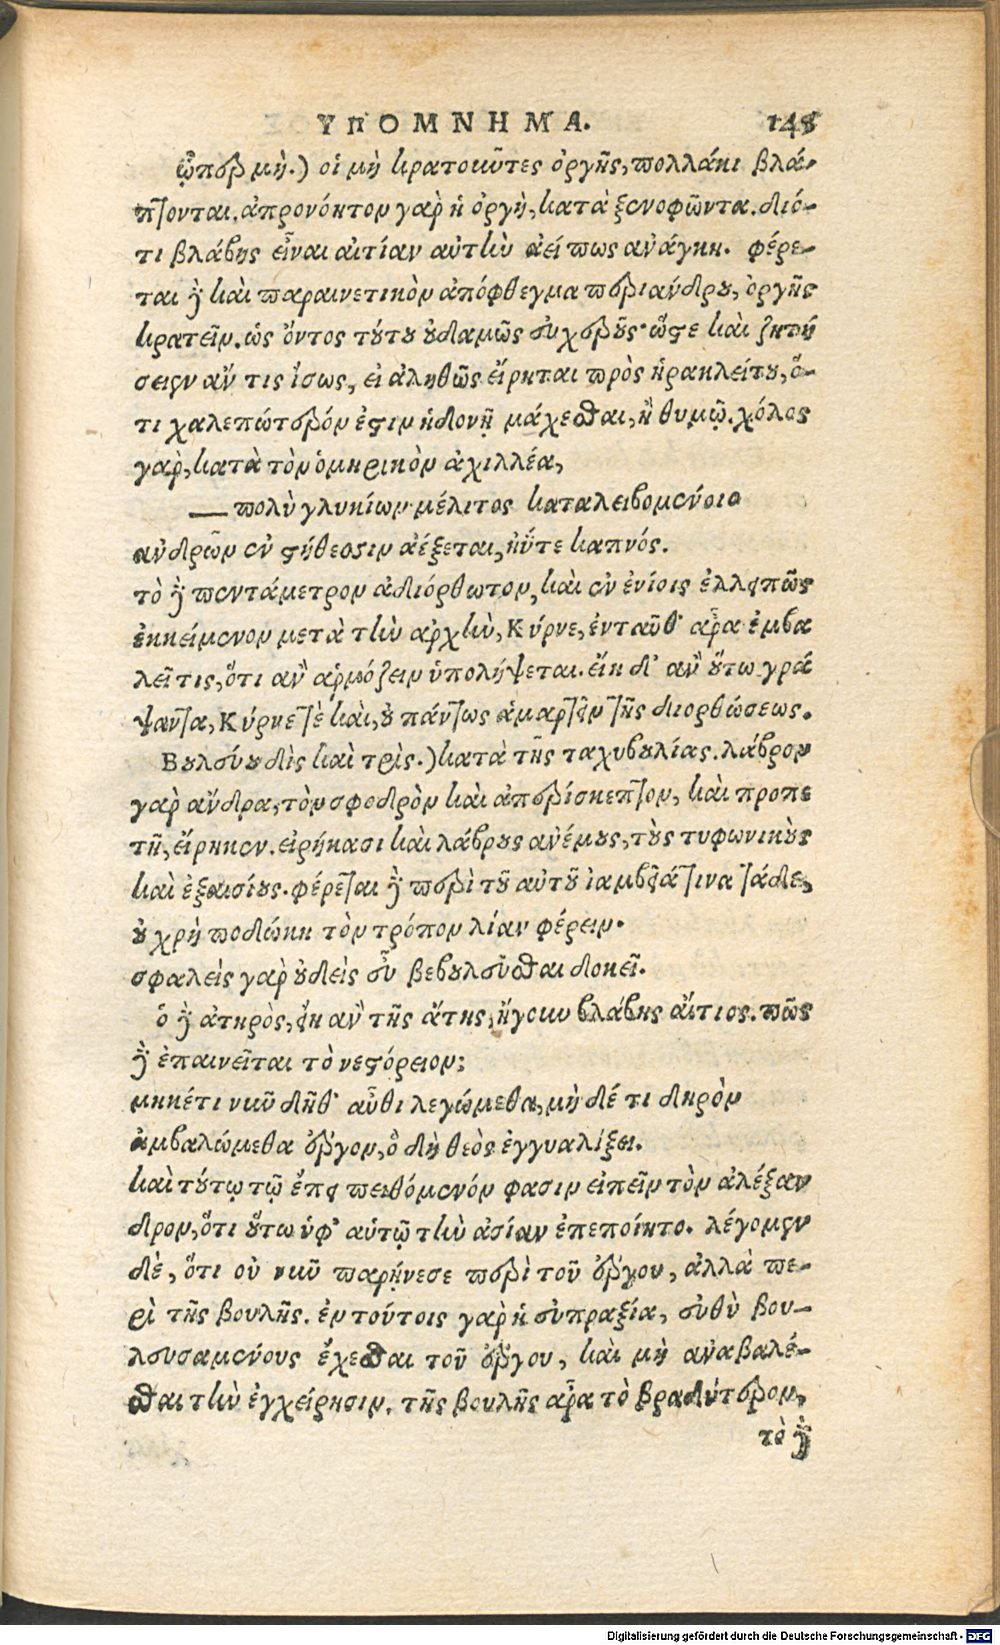 ΥΠΟΜΝΗΜΑ. 148
ᾧπερ μὴ.) οἱ μὴ κρατοῦντες ὀργῆς, πολλάκι βλά-
πτονται. ἀπρονόητον γαρ ἡ ὀργὴ, κατὰ ξενοφῶντα. διό-
τι βλάβης εἶναι αἰτίαν αὐτὴν ἀεί πως ανάγκη. φέρε-
ται δὲ καὶ παραινετικὸν ἀπόφθεγμα περιάνδρου, ὀργῆς
κρατεῖν. ὡς ὄντος τούτου οὐδαμῶς εὐχεροῦς· ὥστε καὶ ζητή
σειεν ἄν τις ἴσως, εἰ ἀληθῶς εἴρηται πρὸς ἡρακλείτου, ὅ-
τι χαλεπώτερόν ἐστιν ἡδονῇ μάχεσθαι, ἢ θυμῷ. χόλος
γαρ, κατὰ τὸν ὁμηρικὸν ἀχιλλέα,
— πολὺ γλυκίων μέλιτος καταλειβομένοιο
ανδρῶν ἐν στήθεσσιν ἀέξεται, ἠΰτε καπνός.
τὸ δὲ πεντάμετρον ἀδιόρθωτον, καὶ ἐν ἐνίοις ἐλλειπῶς
ἐκκείμενον μετὰ τὴν αρχὴν, Κύρνε, ἐνταῦθ' ἆρα ἐμβα
λεῖ τις, ὅτι ἂν ἁρμόζειν ὑπολήψεται. εἴη δ' ἂν οὕτω γρά
ψαντα, Κύρνε τὲ καὶ, οὐ πάντως ἁμαρτεῖν τῆς διορθώσεως.
Βουλεύου δὶς καὶ τρὶς.) κατὰ τῆς ταχυβουλίας. λάβρον
γαρ ἄνδρα, τὸν σφοδρὸν καὶ ἀπερίσκεπτον, καὶ προπε
τῆ, εἴρηκεν. εἰρήκασι καὶ λάβρους ανέμους, τοὺς τυφωνικοὺς
καὶ ἐξαισίους. φέρεται δὲ περὶ τοῦ αὐτοῦ ἰαμβεῖά τινα τάδε,
οὐ χρὴ ποδώκη τὸν τρόπον λίαν φέρειν.
σφαλεὶς γαρ οὐδεὶς εὖ βεβουλεῦσθαι δοκεῖ.
ὁ δὲ ἀτηρὸς, εἴη ἂν τῆς ἄτης, ἤγουν βλάβης αἴτιος. πῶς
δὲ ἐπαινεῖται τὸ νεστόρειον;
μηκέτι νῦν δῆθ' αὖθι λεγώμεθα, μὴ δέ τι δηρὸν
ἀμβαλώμεθα ἔργον, ὃ δὴ θεὸς ἐγγυαλίξει.
καὶ τούτῳ τῷ ἔπει πειθόμενόν φασιν εἰπεῖν τὸν ἀλέξαν
δρον, ὅτι οὕτω ὑφ' αὑτῷ τὴν ἀσίαν ἐπεποίητο. λέγομεν
δὲ, ὅτι οὐ νῦν παρῄνεσε περὶ τοῦ ἔργου, ἀλλὰ πε-
ρὶ τῆς βουλῆς. ἐν τούτοις γαρ ἡ εὐπραξία, εὐθὺ βου-
λευσαμένους ἔχεσθαι τοῦ ἔργου, καὶ μὴ αναβαλέ-
σθαι τὴν ἐγχείρησιν. τῆς βουλῆς ἆρα τὸ βραδύτερον,
τὸ δὲ
Digitalisierung gefördert durch die Deutsche Forschungsgemeinschaft - DFG